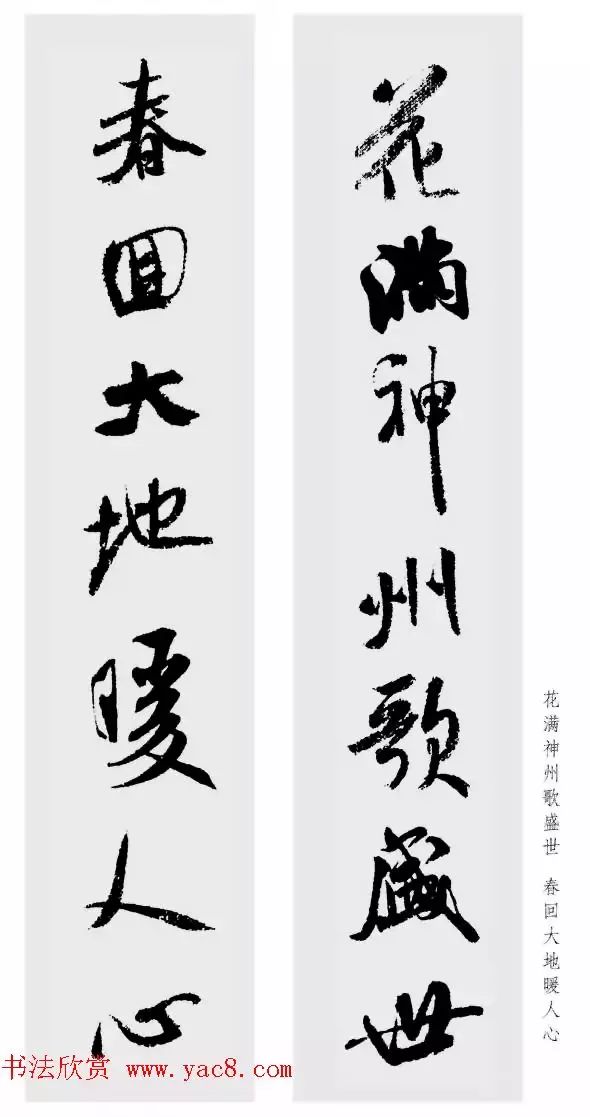 花满神州歌盛世
春回大地暖人心
花满神州歌盛世 春回大地暖人心
书法欣赏 www.yac8.com